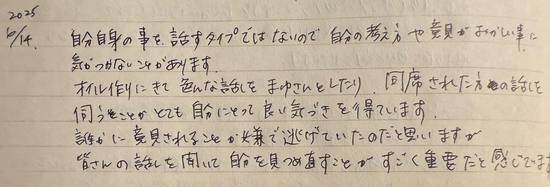 2025
6/14. 自分自身の事を話すタイプではないので 自分の考え方や意見がおかしい事に
気がつかないことがあります.
オイル作りにきて 色んな話しを まゆさんとしたり、同席された方の話しを
伺うことがとても自分にとって良い気づきを得ています.
誰かに意見されることが嫌で逃げていたのだと思いますが
皆さんの話しを聞いて 自分を見つめ直すことがすごく重要だと感じてます